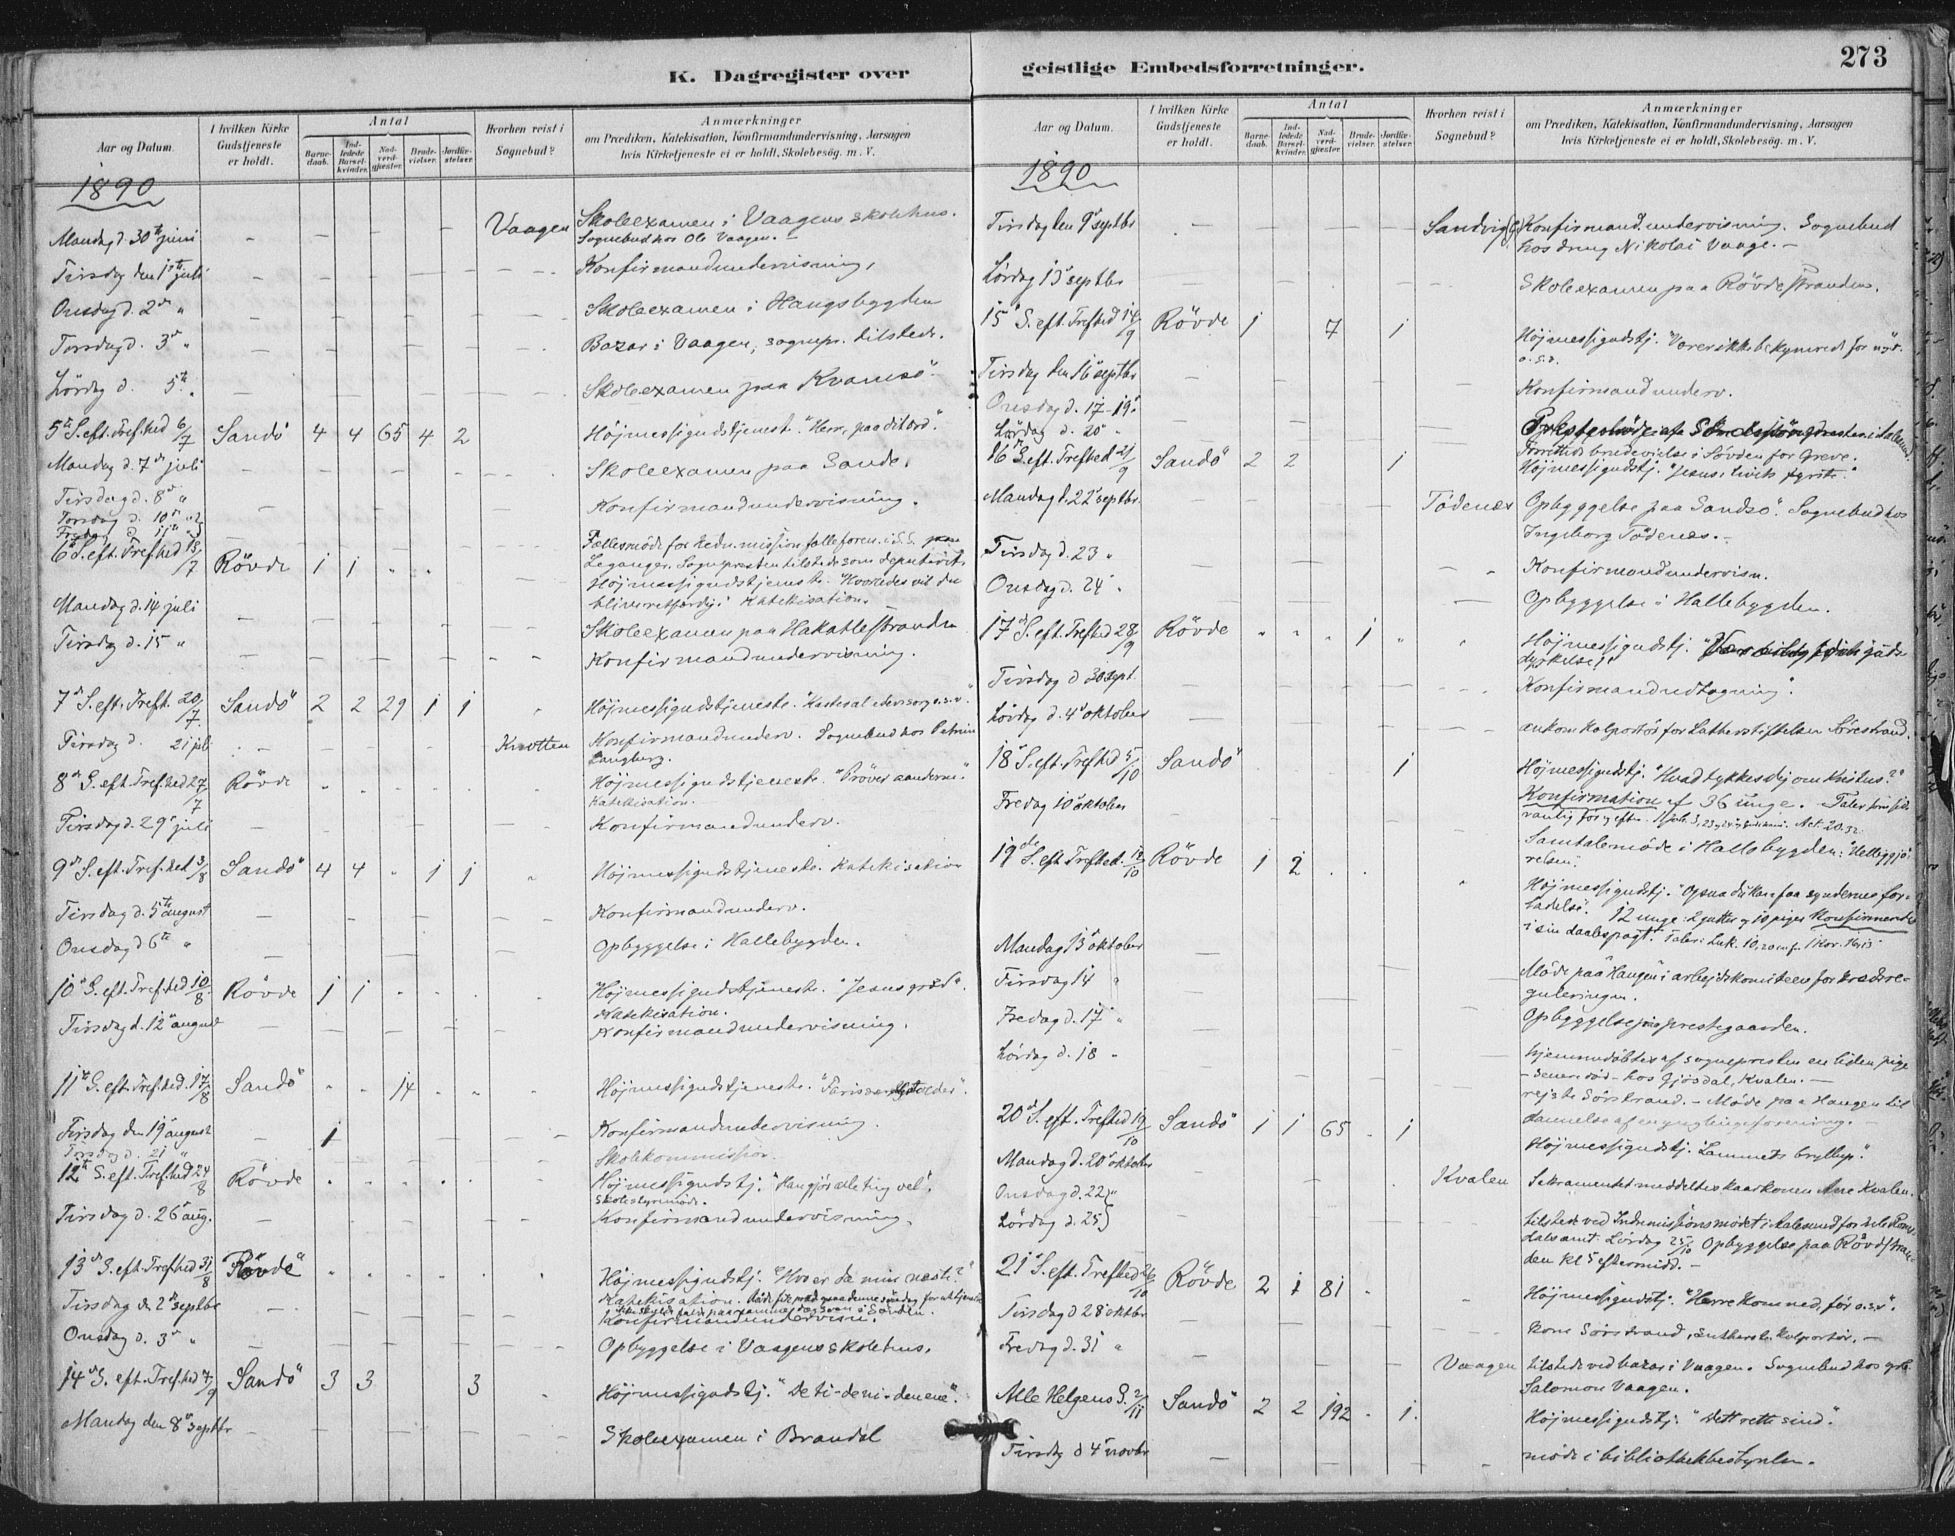 K. Dagregister over
Aar og Datum.
I hvilken Kirke Gudstjeneste er holdt.
Antal
Barnedaab.
Indledede Barselkvinder.
Nadverdgjæster.
Brudevielser.
Jordfæstelser.
Hvorhen reist i Sognebud?
Anmærkninger
om Prædiken, Katekisation, Konfirmandundervisning, Aarsagen
hvis Kirketjeneste ei er holdt, Skolebesøg. m. V.
1890
Mandag d. 30te juni - - - - - - Vaagen Skoleexamen i Vaagens skolehus.
Sognebud hos Ole Vaagen. -
Tirsdag den 1ste juli Konfirmandundervisning.
Onsdag d. 2den " Skoleexamen i Haugsbygden
Torsdag d. 3de " Bazar i Vaagen, sognepr. tilstede.
Lördag d. 5te " Skoleexamen paa Kvamsö
5te S. eft. Trefhed 6/7 Sandö 4 4 65 4 2 Höjmessigudstjeneste. "Herr, paa dit ord".
Mandag d. 7de juli Skoleexamen paa Sande.
Tirsdag d. 8de " Konfirmandundervisning.
Torsdag d. 10de "
Fredag d. 11te " Fællesmöde for Indremissionsforen. i S.S. paa
Leganger. Sognepresten tilstede som deputeret.
6te S. eft. Trefhed 13/7 Rövde 1 1 " " Höjmessigudstjeneste. "Hvorledes vil du
bliver retfærdig". Katekisation.
Mandag d. 14 juli Skoleexamen paa Hakallestranden
Tirsdag d. 15 " Konfirmandundervisning.
7de S. eft. Trefh. 20/7 Sandö 2 2 29 1 1 " Höjmessigudstjeneste. "Kast al eders sorg o.s.v."
Tirsdag d. 21 juli Konfirmandunderv. Sognebud hos Petrine
Langberg.
8de S. eft. Trefhed 27/7 Rövde Höjmessigudstjeneste. "Pröver aanderne".
Katekisation. -
Tirsdag d. 29de juli Konfirmandunderv.
9de S. eft. Trefhed 3/8 Sandö 4 4 " 1 1 " Höjmessigudstjeneste. Katekisation
Tirsdag d. 5te august Konfirmandunderv.
Onsdag d 6te " Opbyggelse i Hallebygden.
10de S. eft. Trefhed 10/8 Rövde 1 1 Höjmessigudstjeneste. "Jesus græd".
Katekisation.
Tirsdag d. 12te august Konfirmandundervisning.
11te S. eft. Trefhed. 17/8 Sandö " " 14 " " " Höjmessigudstjeneste.
Tirsdag den 19de august - 1 Konfirmandundervisning.
Torsdag d. 21 " Skolekommission.
12te S. eft. Trefhed 24/8 Rövde Höjmessigudstj. "Han gjör alle ting vel".
Skolestyremöde.
Tirsdag d. 26de aug. Konfirmandundervisning.
13de S. eft. Trefhed 31/8 Rövde Höjmessigudstj. "Hvo er da min næste?"
Katekisation.
Tirsdag den 2den septbr Konfirmandundervisn.
Onsdag d. 3de " Opbyggelse i Vaagens skolehus.
14de S. eft. Trefhed 7/9 Sandö 3 3 3 Höjmessigudstj. "De ti - de ni - den ene".
Mandag den 8de septbr Skoleexamen i Brandal
geistlige Embedsforretninger.
273
Aar og Datum.
I hvilken Kirke Gudstjeneste er holdt.
Antal
Barnedaab.
Indledede Barselkvinder.
Nadverdgjæster.
Brudevielser.
Jordfæstelser.
Hvorhen reist i Sognebud?
Anmærkninger
om Prædiken, Katekisation, Konfirmandundervisning, Aarsagen
hvis Kirketjeneste ei er holdt, Skolebesøg. m. V.
1890
Tirsdag den 9de septbr - - - - - - Sandvig Konfirmandundervisning. Sognebud
hos dreng Nikolai Vaage. -
Lördag 13 septbr Skoleexamen paa Rövdestranden.
15de S. eft. Trefhed 14/9 Rövde 1 7 1 Höjmessigudstj. "Værer ikke bekymrede for"
o.s.v.
Tirsdag den 16de septbr Konfirmandunderv.
Onsdag d. 17-19de
Lördag d. 20de " Forrettede brudevielse i Sövden for Greve.
16de S. eft. Trefhed 21/9 Sandö 2 2 1 Höjmessigudstj. "Jesus: livets fyrste".
Mandag d. 22de septbr. Tödenæs Opbyggelse paa Sandsö. Sognebud hos
Ingeborg Tödenes. -
Tirsdag d. 23 " Konfirmandundervisn.
Onsdag d. 24 " Opbyggelse i Hallebygden.
17de S. eft. Trefhed 28/9 Rövde " " " 1 " " Höjmessigudstj.
dyrkelse!"
Tirsdag d 30 sept. Konfirmandudtagning.
Lördag d. 4de oktober ankom kolportör for Lutherstiftelsen Sörestrand.
18de S. eft. Trefhed 5/10 Sandö 1 Höjmessigudstj. "Hvad tykkes dig om Kristus?"
Konfirmation af 36 unge. - Taler som sæd
vanlig för og efter. Act. 20.32
Fredag 10de oktober Samtalemöde i Hallebygden: "Helliggjö
relsen".
19de S. eft. Trefhed. 12/10 Rövde 1 2 Höjmessigudstj. "Ogsaa du kan faa syndernes for-
ladelse". 12 unge: 2 gutter og 10 piger konfirmerede
i sin daabspagt. Taler: Luk. 10,20 1 Kor. 16.13
Mandag 13de oktober Möde paa Haugen i arbejdskomiteen for kredsre-
guleringen.
Tirsdag 14 "
Fredag d. 17 " Opbyggelse paa prestegaarden.
Lördag d. 18 " hjemmedöbtes af sognepresten en liden pige
- senere död - hos Gjösdal, Kvalen. -
rejste Sörstrand. - Möde paa Haugen til
dannelse af en ynglingeforening. -
20de S. eft. Trefhed 19/10 Sandö 1 1 65 " 1 Höjmessigudstj. "Lammets bryllup".
Mandag d. 20de oktober Kvalen Sakramentet meddeltes kaarkonen Ane Kvalen.
Onsdag d. 22de "
Lördag d. 25 tilstede ved Indremissionsmödet i Aalesund for hele Roms-
dals amt. Lördag 25/10 Opbyggelse paa Rövdestran-
den kl 5 eftermidd. -
21de S. eft. Trefhed 26/10 Rövde 2 1 81 Höjmessigudstj. "Herre kom ned, för o.s.v".
Tirsdag d 28 oktbr. kom Sörstrand, Lutherst. kolportör. -
Fredag d. 31 " Vaagen tilstede ved bazar i Vaagen. Sognebud hos grb.
Salomon Vaagen.
Alle Helgens S. 2/11 Sandö 2 2 192 " 1. Höjmessigudstj: "Det rette sind".
Tirsdag d 4de novbr möde i bibliothekbestyrelsen.